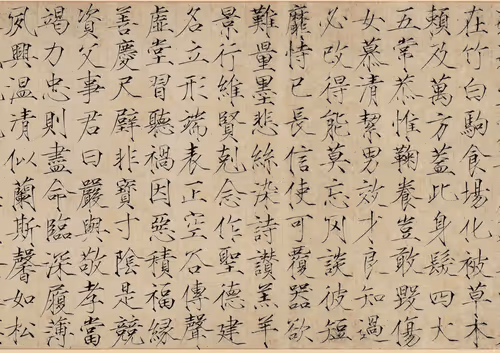 在竹白駒食場化被草木
賴及萬方蓋此身髮四大
五常恭惟鞠養豈敢毀傷
女慕清絜男效才良知過
必改得能莫忘罔談彼短
靡恃己長信使可覆器欲
難量墨悲絲染詩讚羔羊
景行維賢剋念作聖德建
名立形端表正空谷傳聲
虛堂習聽禍因惡積福緣
善慶尺璧非寶寸陰是競
資父事君曰嚴與敬孝當
竭力忠則盡命臨深履薄
夙興溫清似蘭斯馨如松